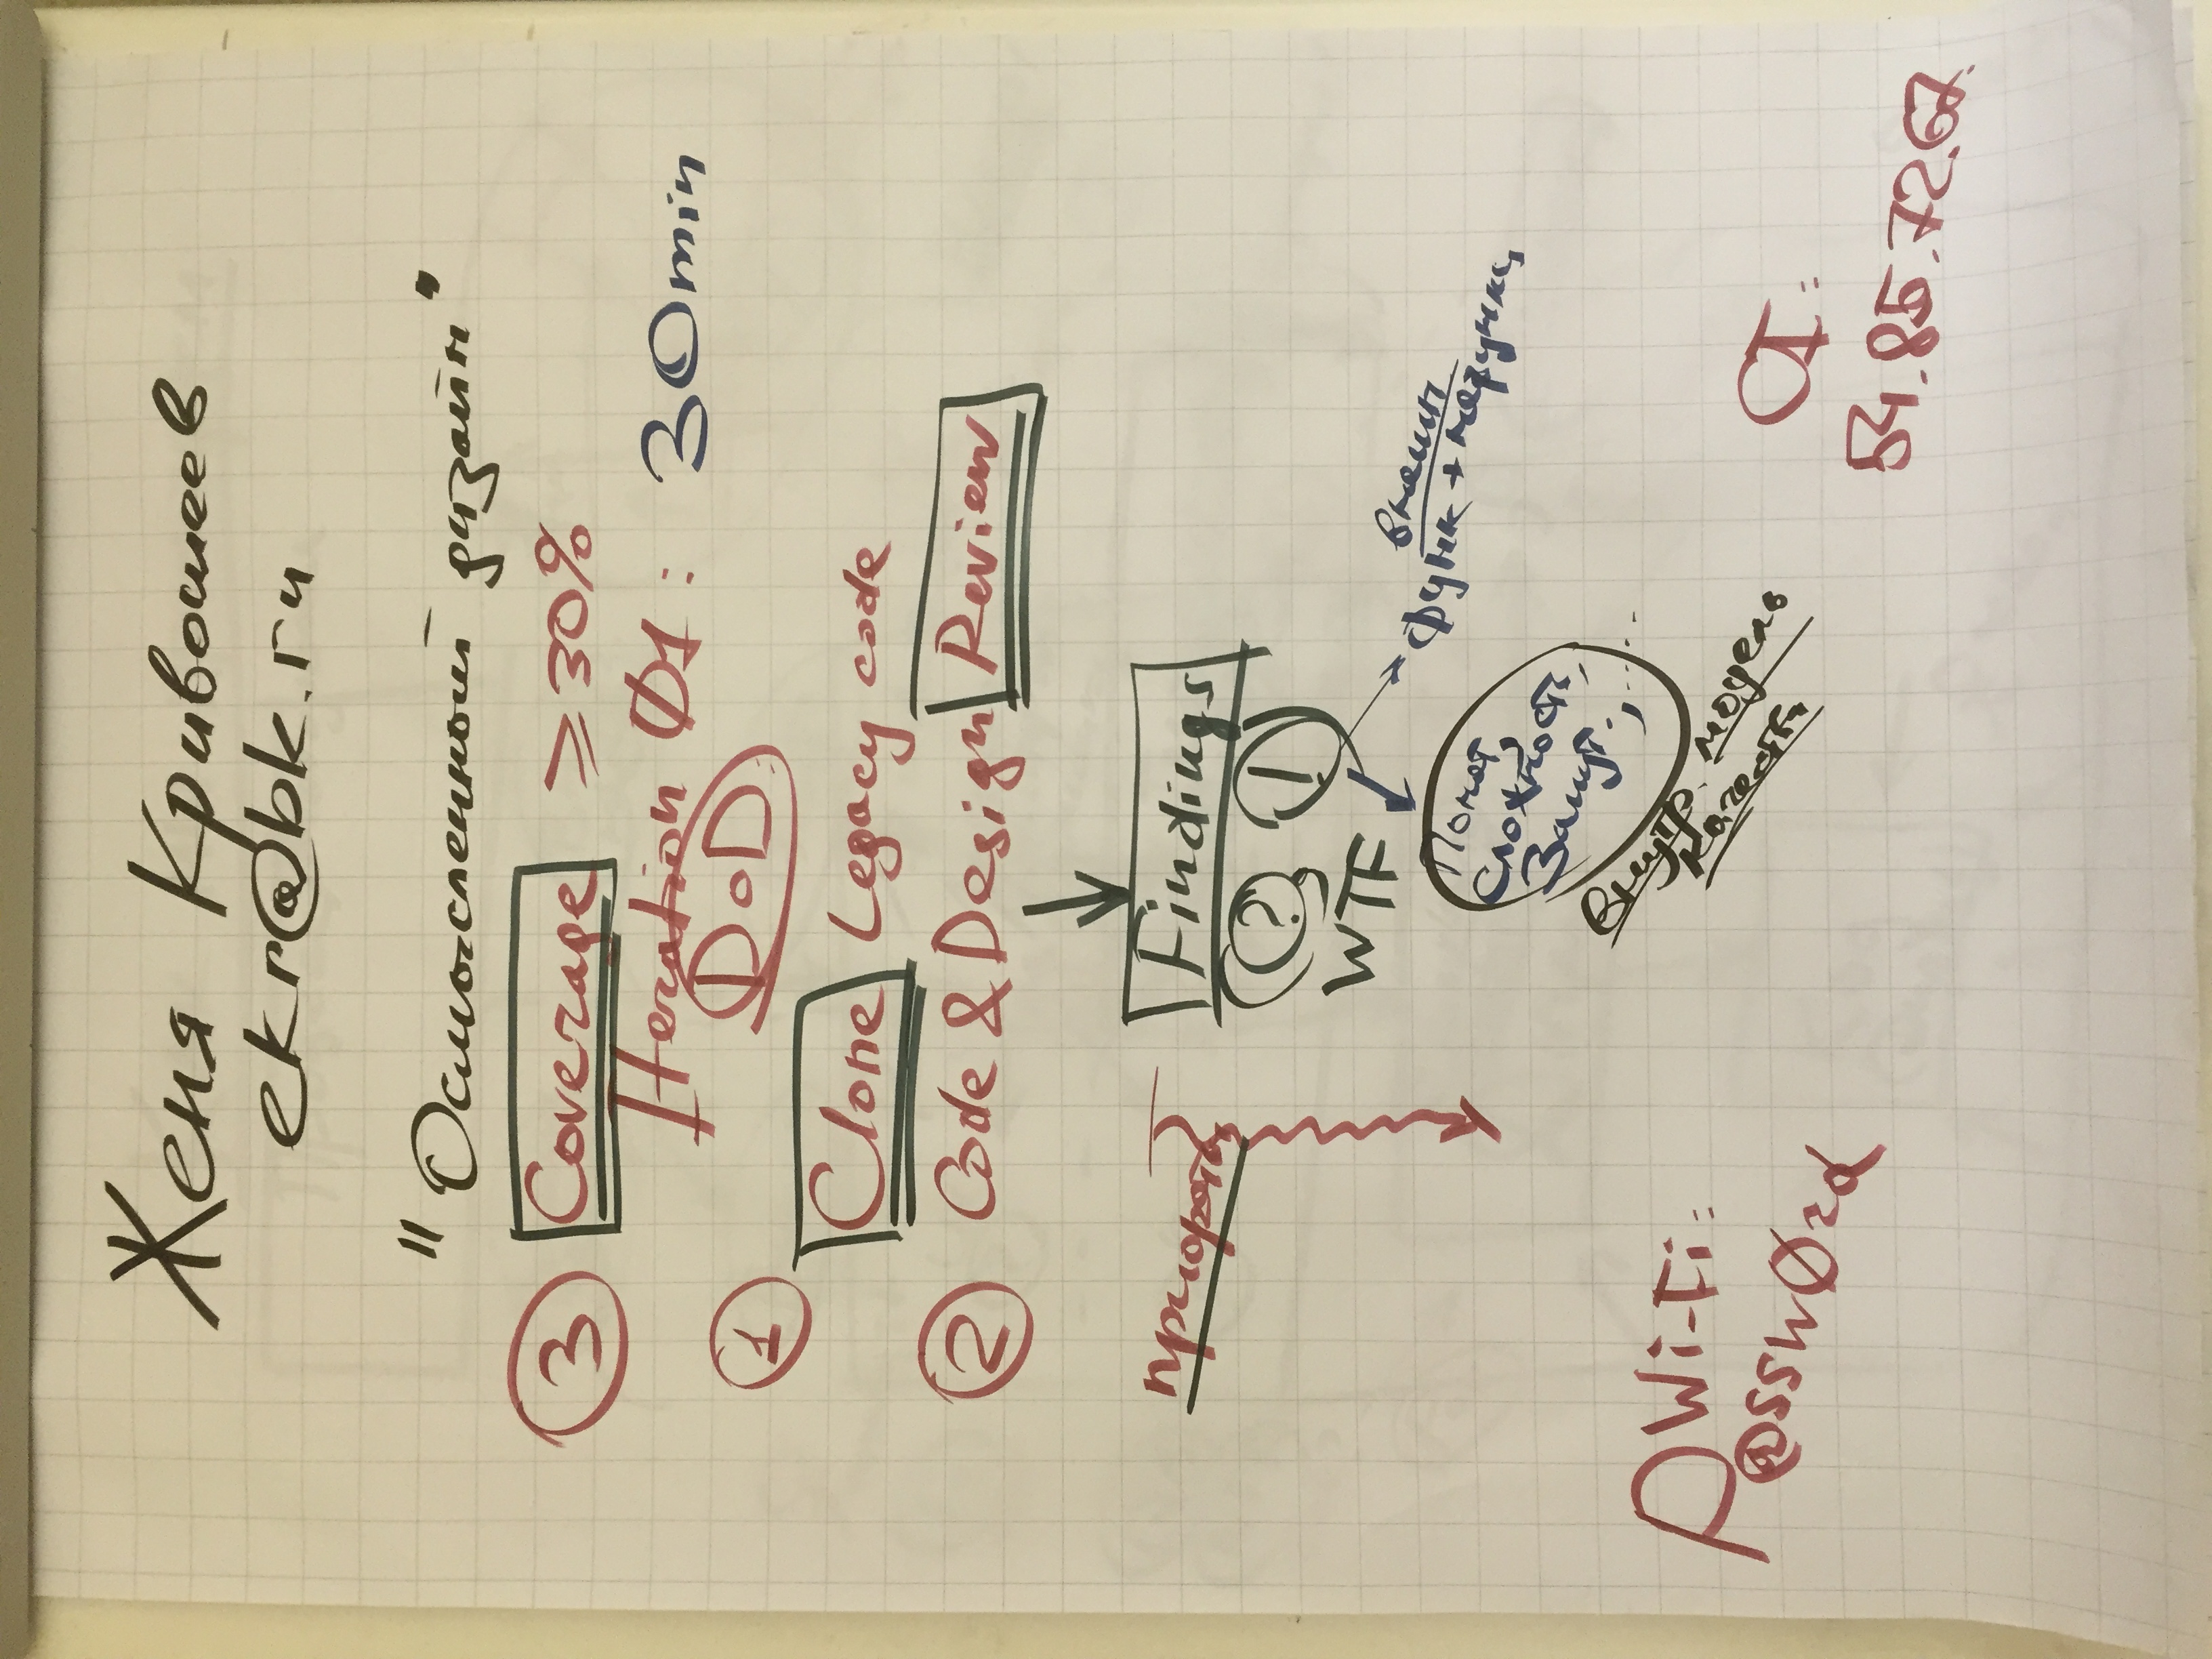 Женя Кривошеев
ekr@bk.ru
"Осмысленный дизайн"
3 Coverage ≥30%
Iteration Ø1: 30min
DoD
1
Clone Legacy code
2 Code & Design Review
Findings
приорит
? !
WTF
внешн
функ +
Понят,
Сложность,
Запут., .....
внутр. модель
качества
Wi-Fi:
P@sswØrd
CI:
54.85.72.67